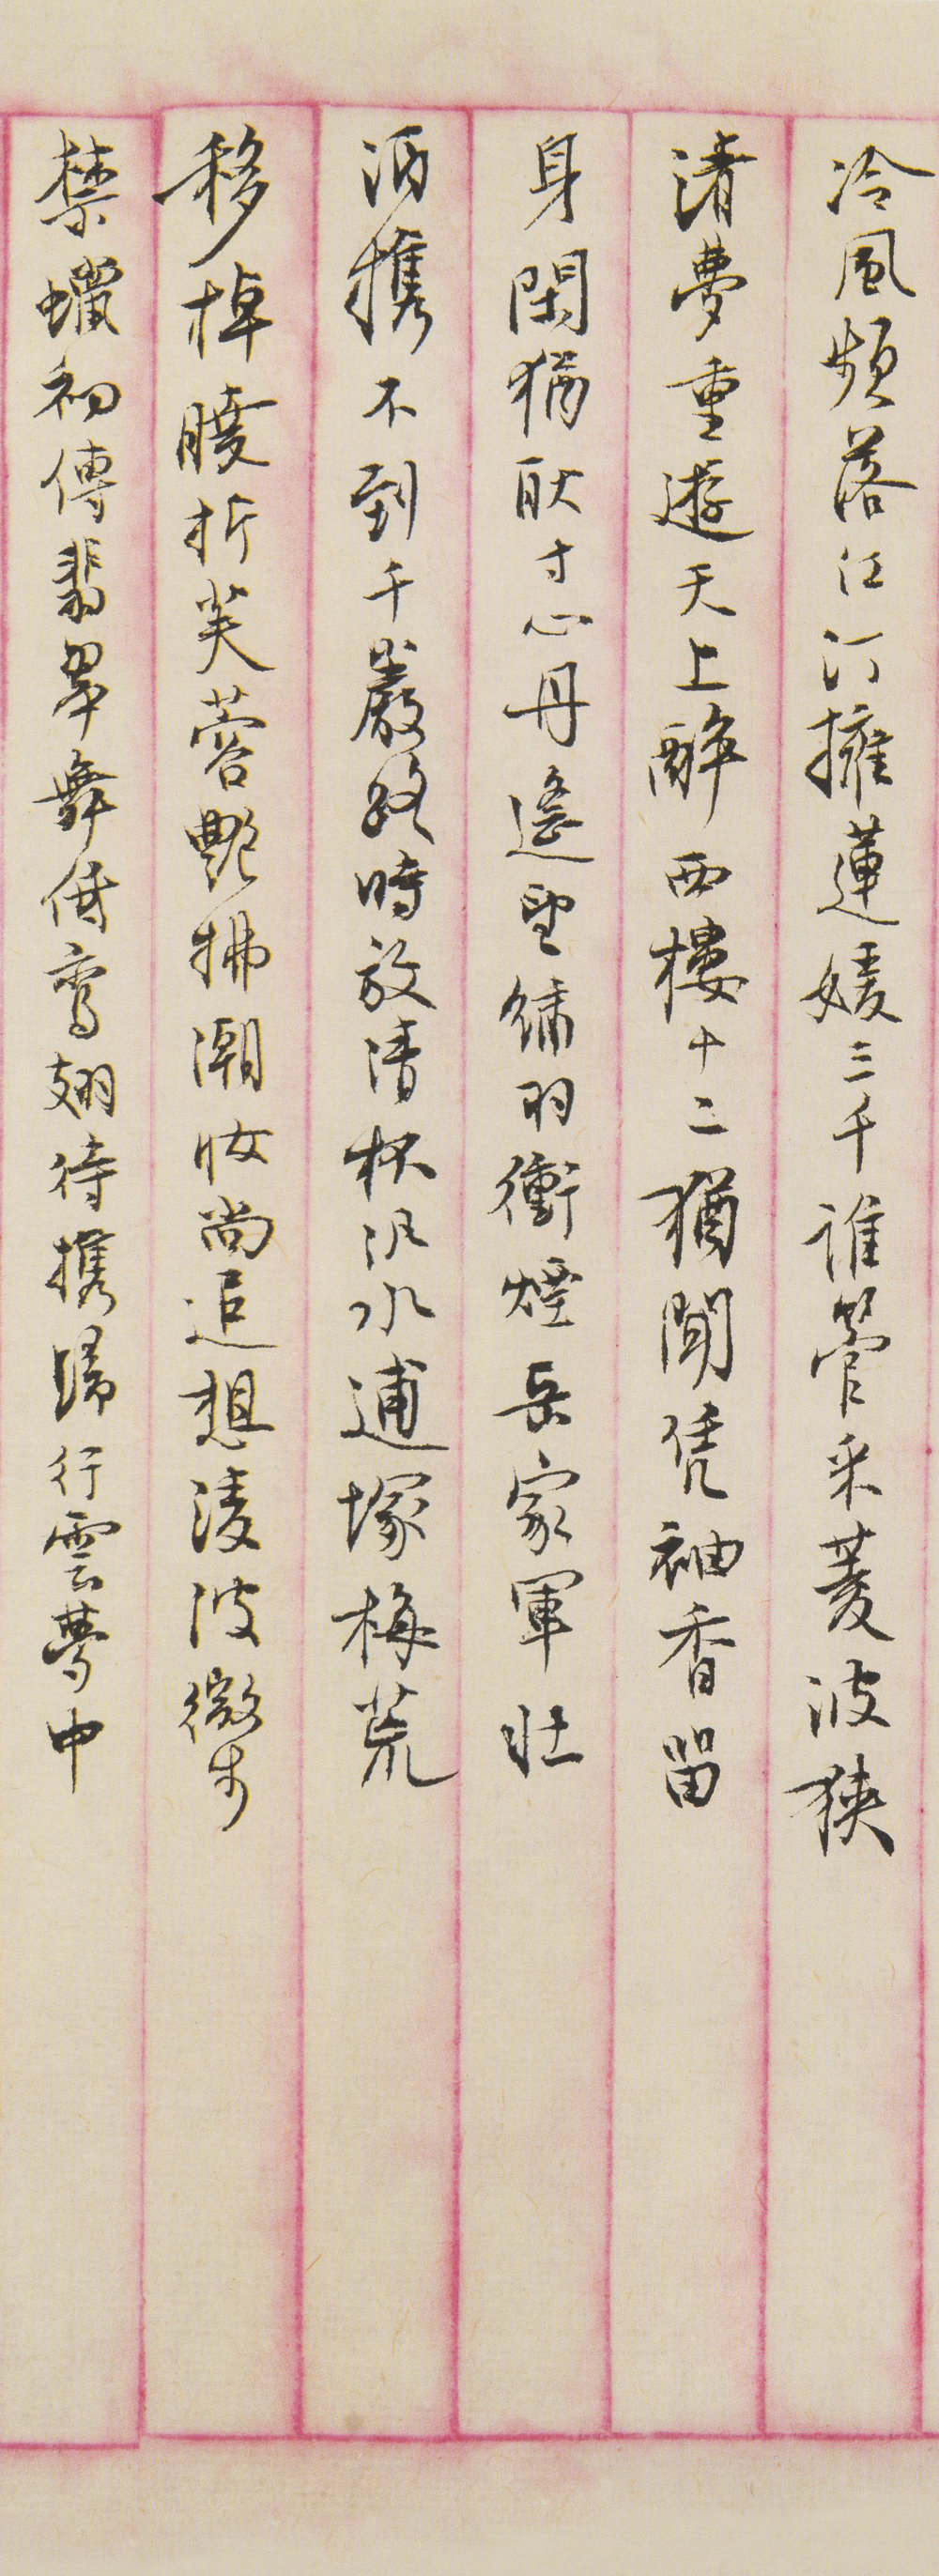 冷風頻落江汀擁蓮媛三千誰管采菱波狹
清夢重遊天上醉西樓十二猶聞凭袖香留
身閑猶耿寸心丹遙望繡羽衝煙岳家軍壯
酒攜不到千巖路時放清杯汎水逋塚梅荒
移棹曉折芙蓉艷拂潮妝尚追想凌波微步
禁蠟初傳翡翠舞借鸞翅待攜歸行雲夢中